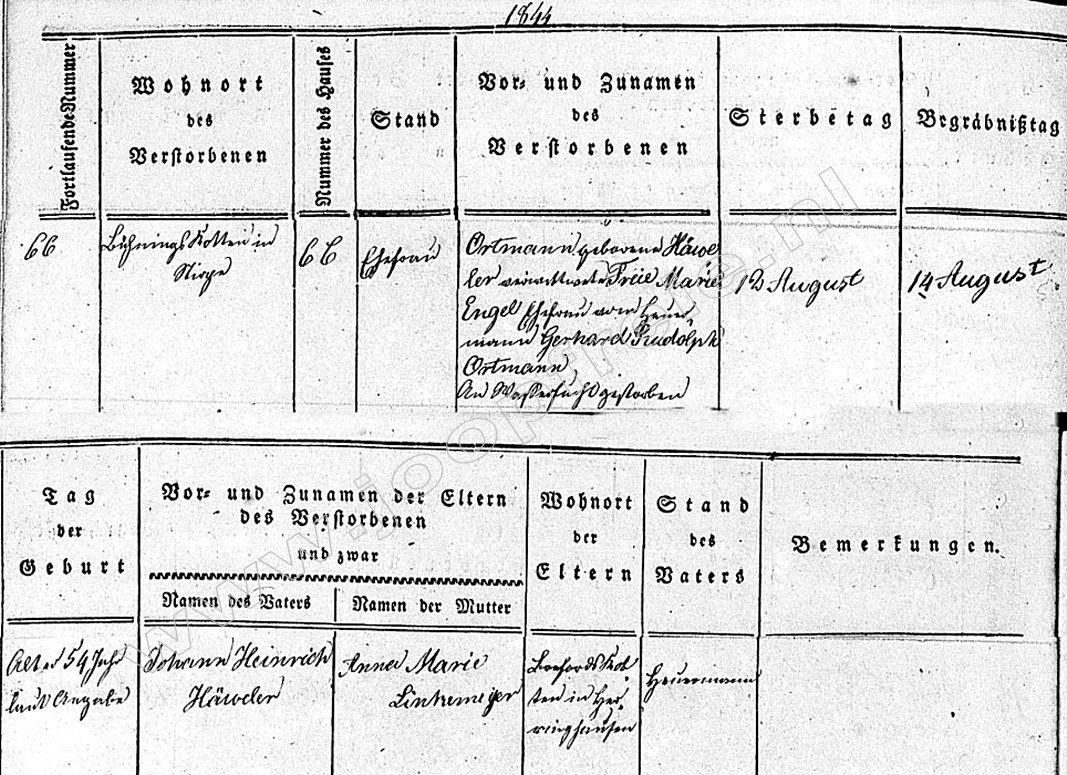 1844
Fortlaufende Nummer
Wohnort
des
Verstorbenen
Nummer des Hauses
Stand
Vor- und Zunamen
des
Verstorbenen
Sterbetag
Begräbnißtag
66
Bühnings Kotten in
Stirpe
66
Ehefrau
Ortmann geborene Häwe
ler verwittwete Freie Marie
Engel Ehefrau vom Heuer,
mann Gerhard Rudolph
Ortmann,
An Wassersucht gestorben
12 August
14 August
Tag
der
Geburt
Vor- und Zunamen der Eltern
des Verstorbenen
und zwar
Namen des Vaters
Namen der Mutter
Wohnort
der
Eltern
Stand
des
Vaters
Bemerkungen.
Alter 54 Jahr
laut Angabe
Johann Heinrich
Häweler
Anna Marie
Linkemeyer
Kot-
ten in Her-
ringhausen
Heuermann